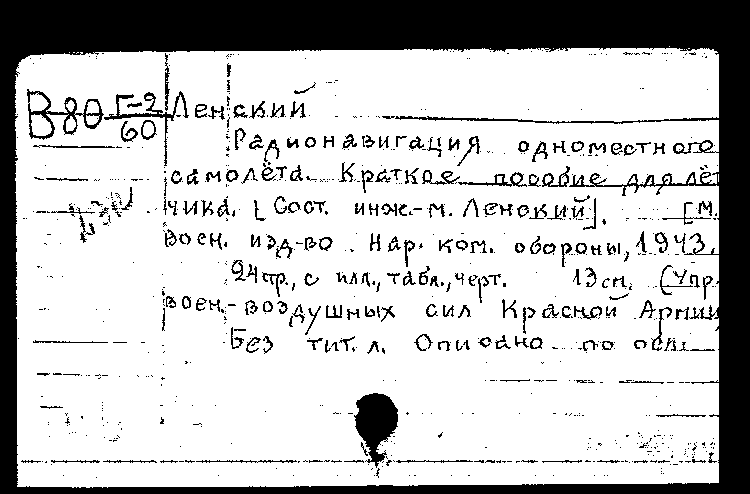 В80 Г-2/60 Ленский
Радионавигация одноместного
самолёта. Краткое пособие для лёт
чика. [Сост. инж.-м. Ленский]. [М.
Воен. изд-во Нар. ком. обороны, 1943.
24 стр., с илл., табл., черт. 13 см. (Упр.
воен.-воздушных сил Красной Армии
Без тит. л. Описано по обл.